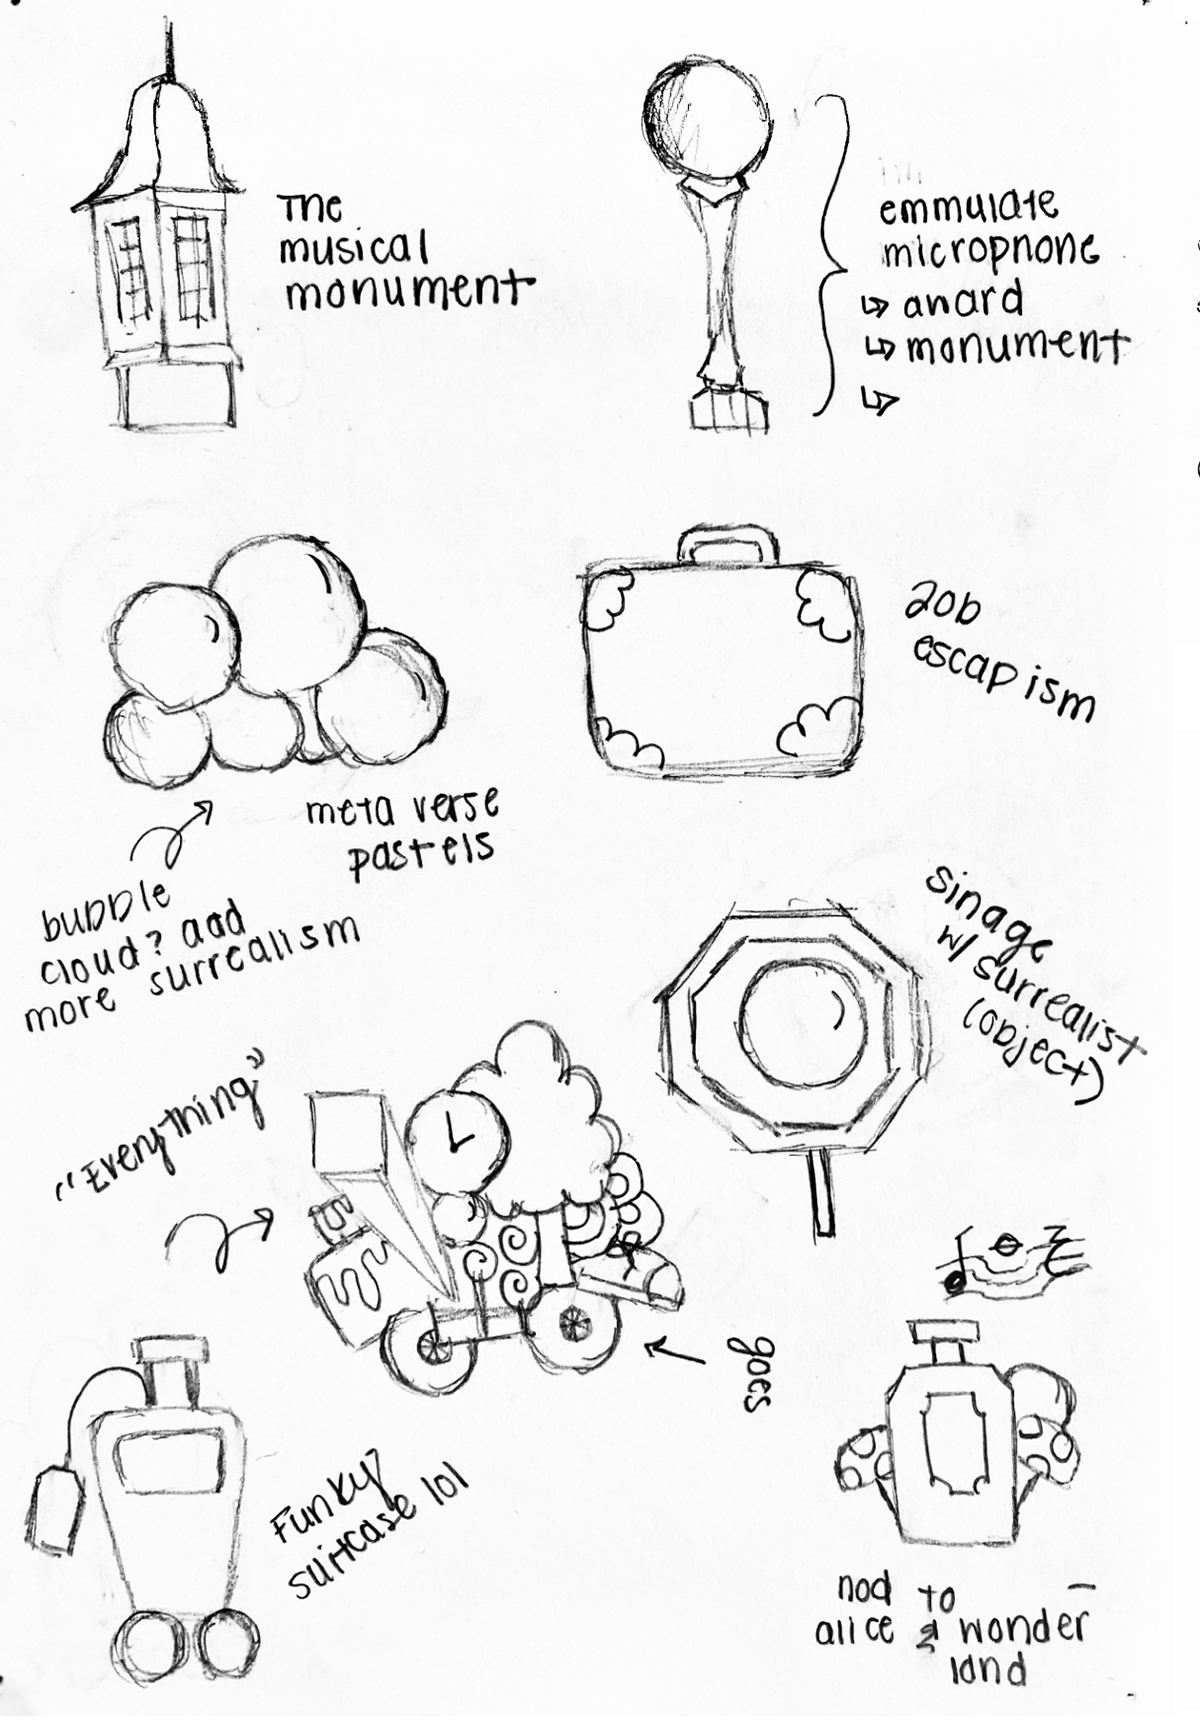 The
musical
monument
emmulate
microphone
↳ award
↳ monument
↳
job
escapism
meta verse
pastels
bubble
cloud? add
more surrealism
sinage
w/ surrealist
(object)
"Everything"
goes
Funky
suitcase lol
nod to
alice & wonder
land